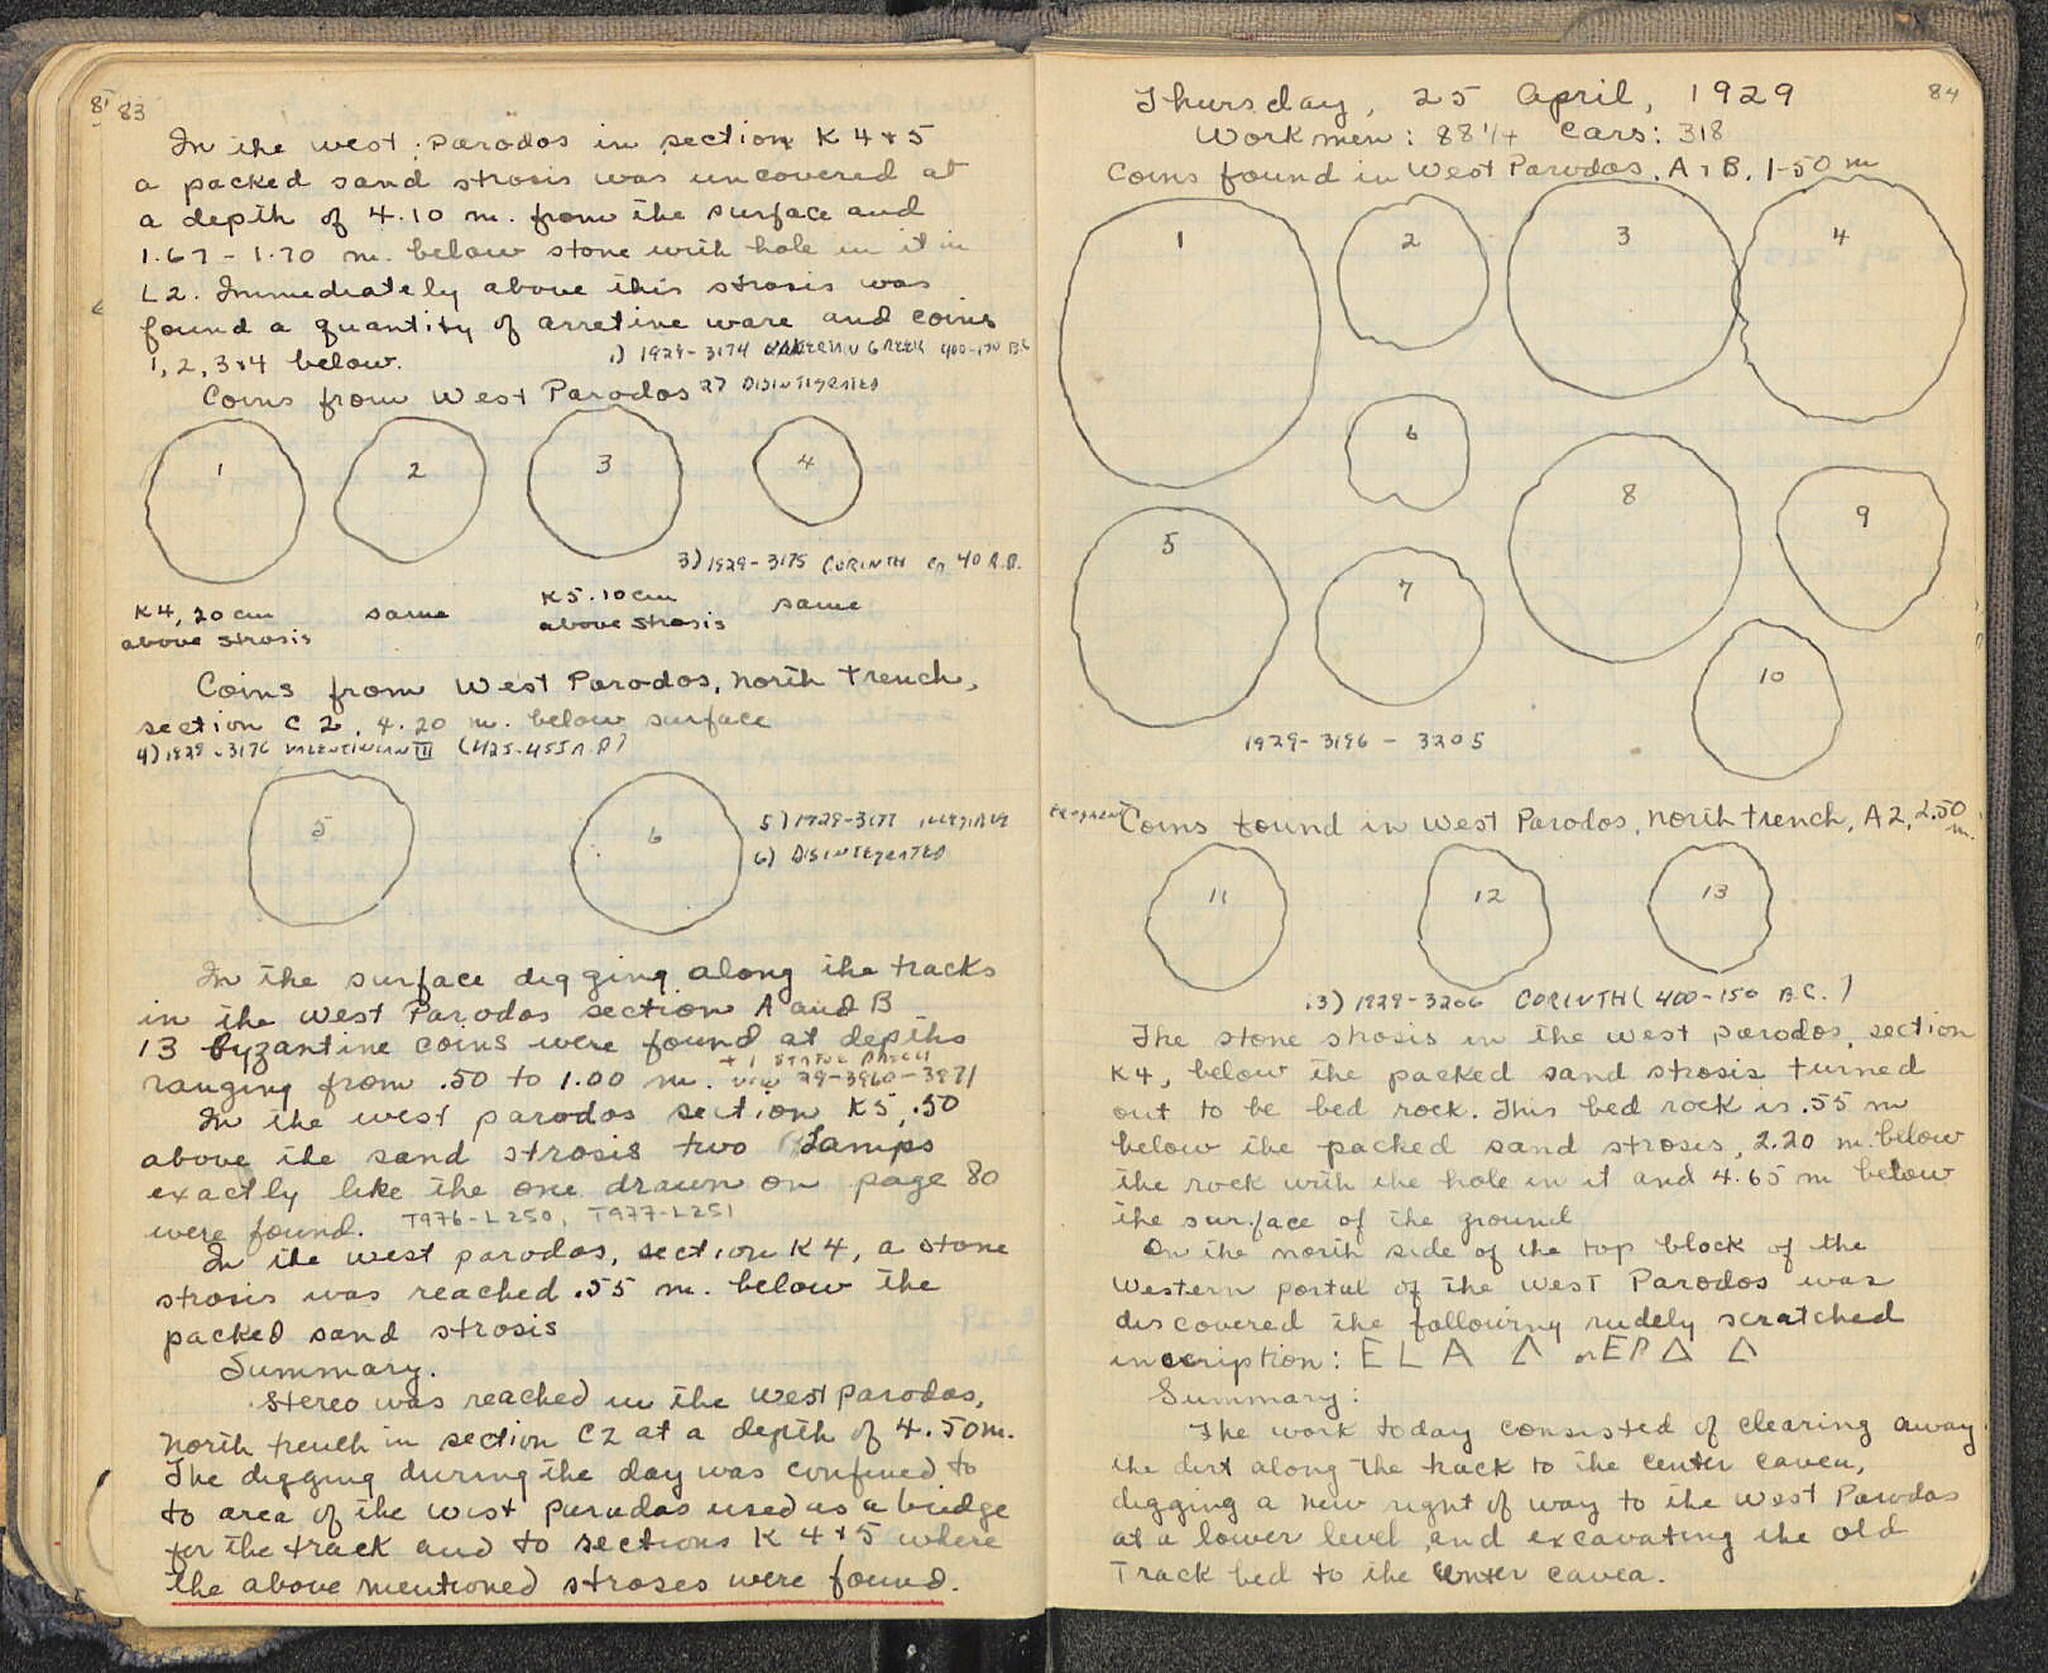 83
In the west parodos in section K 4 + 5
a packed sand strosis was uncovered at
a depth of 4.10 m. from the surface and
1.67 - 1.70 m. below stone with hole in it in
L2. Immediately above this strosis was
found a quantity of arretine ware and coins
1, 2, 3 + 4 below.
1) 1929-3174 GREEK 400-150 B.C
Coins from West Parodos
2) DISINTIGRATED
1
2
3
4
3) 1929-3175 CORINTH CA 40 A.D.
K4, 20 cm
above strosis
same
K5. 10 cm
above strosis
same
Coins from West Parodos, North trench,
section C 2, 4.20 m. below surface
4) 1929-3176 VALENTINIAN III (425-455 A.D)
5
6
5) 1929-3177
6) DISINTEGRATED
In the surface digging along the tracks
in the West Parodos section A and B
13 Byzantine coins were found at depths
ranging from .50 to 1.00 m. 29-3960-3971
In the west parodos section K5, .50
above the sand strosis two Lamps
exactly like the one drawn on page 80
were found. T976-L250, T977-L251
In the west parodos, section K4, a stone
strosis was reached .55 m. below the
packed sand strosis
Summary.
Stereo was reached in the West parodos,
North trench in section C2 at a depth of 4.50m.
The digging during the day was confined to
to area of the west parodos used as a bridge
for the track and to sections K 4 + 5 where
the above mentioned stroses were found.
84
Thursday, 25 April, 1929
Workmen: 88 1/4 Cars: 318
Coins found in West Parodos, A + B, 1-50 m
1
2
3
4
6
8
9
5
7
10
1929-3196 - 3205
Coins found in West Parodos, North trench, A2, 2.50 m.
11
12
13
13) 1929-3206 CORINTH (400-150 B.C.)
The stone strosis in the west parodos, section
K4, below the packed sand strosis turned
out to be bed rock. This bed rock is .55 m
below the packed sand strosis, 2.20 m. below
the rock with the hole in it and 4.65 m below
the surface of the ground
On the north side of the top block of the
Western portal of the West Parodos was
discovered the following rudely scratched
inscription: E L A Λ or E P Δ Δ
Summary:
The work today consisted of clearing away
the dirt along the track to the center cavea,
digging a new right of way to the West Parodos
at a lower level, and excavating the old
Track bed to the center cavea.